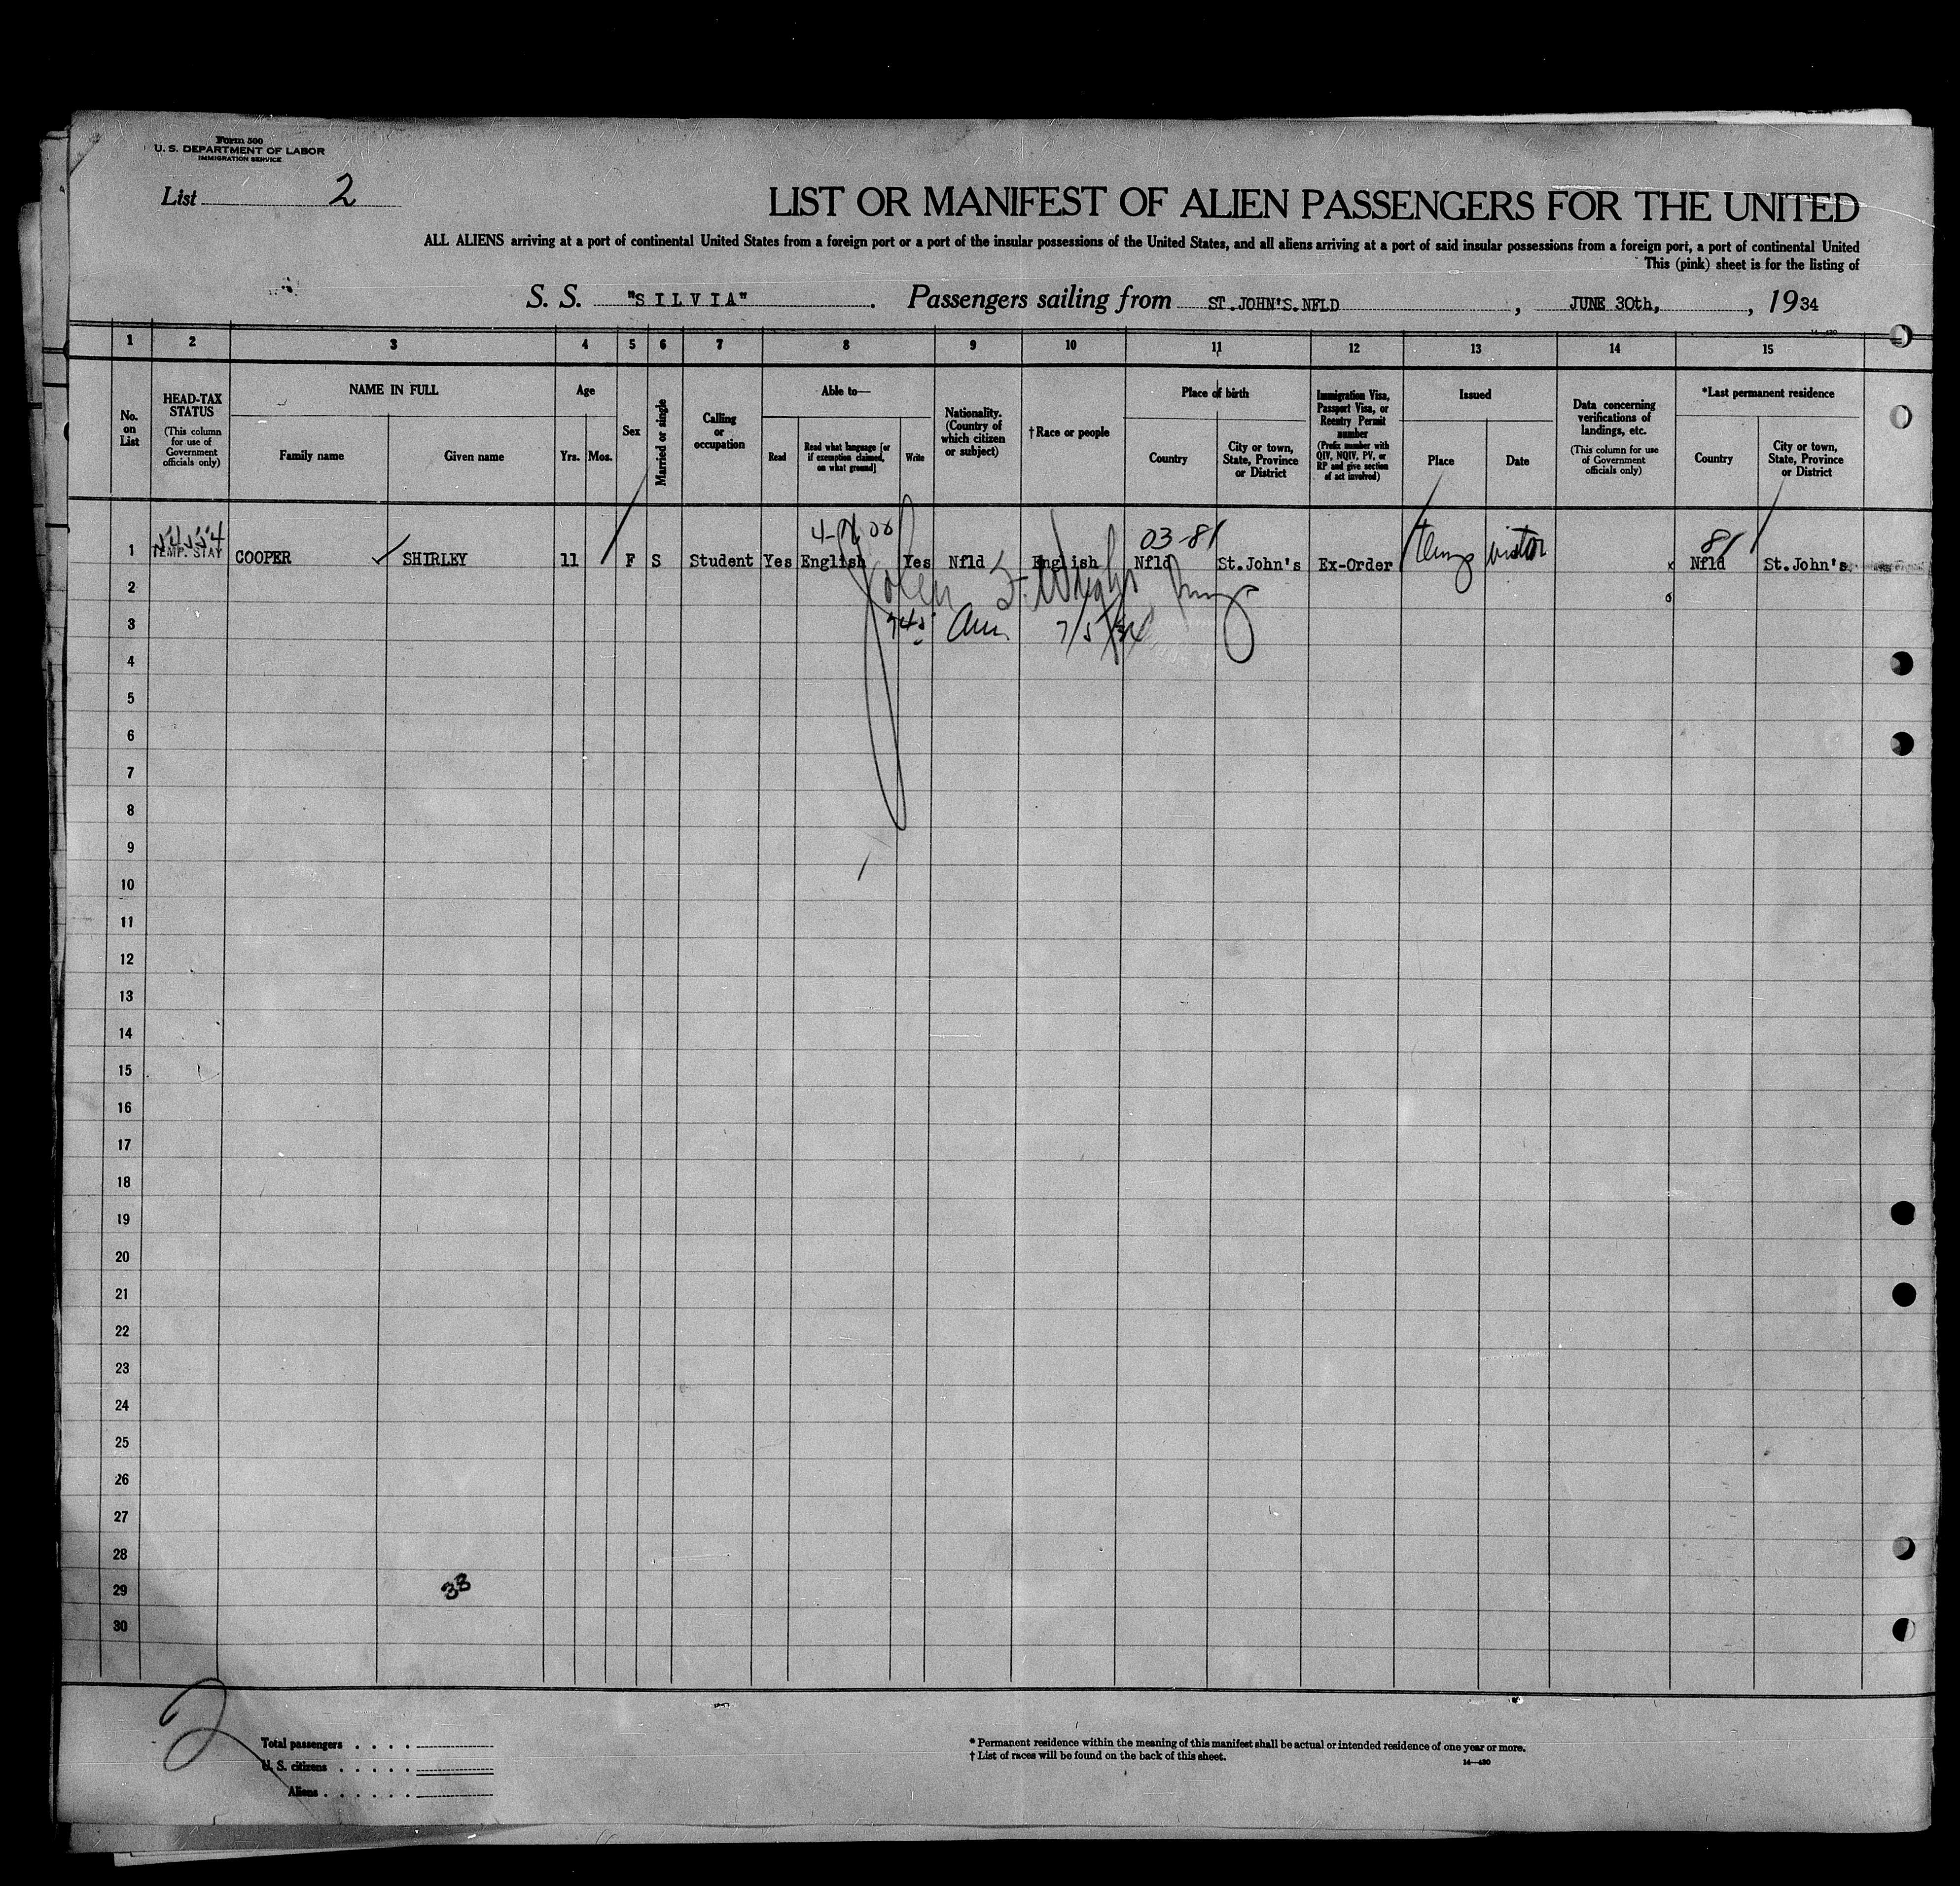 Form 500
U. S. DEPARTMENT OF LABOR
IMMIGRATION SERVICE
List 2
LIST OR MANIFEST OF ALIEN PASSENGERS FOR THE UNITED
ALL ALIENS arriving at a port of continental United States from a foreign port or a port of the insular possessions of the United States, and all aliens arriving at a port of said insular possessions from a foreign port, a port of continental United
This (pink) sheet is for the listing of
S. S. "SILVIA". Passengers sailing from ST.JOHN'S.NFLD, JUNE 30th, , 1934
14-430
1 2 3 4 5 6 7 8 9 10 11 12 13 14 15
No. on List
HEAD-TAX STATUS
(This column for use of Government officials only)
NAME IN FULL
Family name
Given name
Age
Yrs.
Mos.
Sex
Married or single
Calling or occupation
Able to—
Read
Read what language [or if exemption claimed, on what ground]
Write
Nationality. (Country of which citizen or subject)
†Race or people
Place of birth
Country
City or town, State, Province or District
Immigration Visa, Passport Visa, or Reentry Permit number
(Prefix number with QIV, NQIV, PV, or RP and give section of act involved)
Issued
Place
Date
Data concerning verifications of landings, etc.
(This column for use of Government officials only)
*Last permanent residence
Country
City or town, State, Province or District
03-81
81
1 TEMP. STAY COOPER SHIRLEY 11 F S Student Yes English Yes Nfld English Nfld St.John's Ex-Order temp visitor Nfld St.John's.
2
3 7/5/34
4
5
6
7
8
9
10
11
12
13
14
15
16
17
18
19
20
21
22
23
24
25
26
27
28
29 38
30
2
Total passengers
U. S. citizens
Aliens
* Permanent residence within the meaning of this manifest shall be actual or intended residence of one year or more.
† List of races will be found on the back of this sheet.
14-430